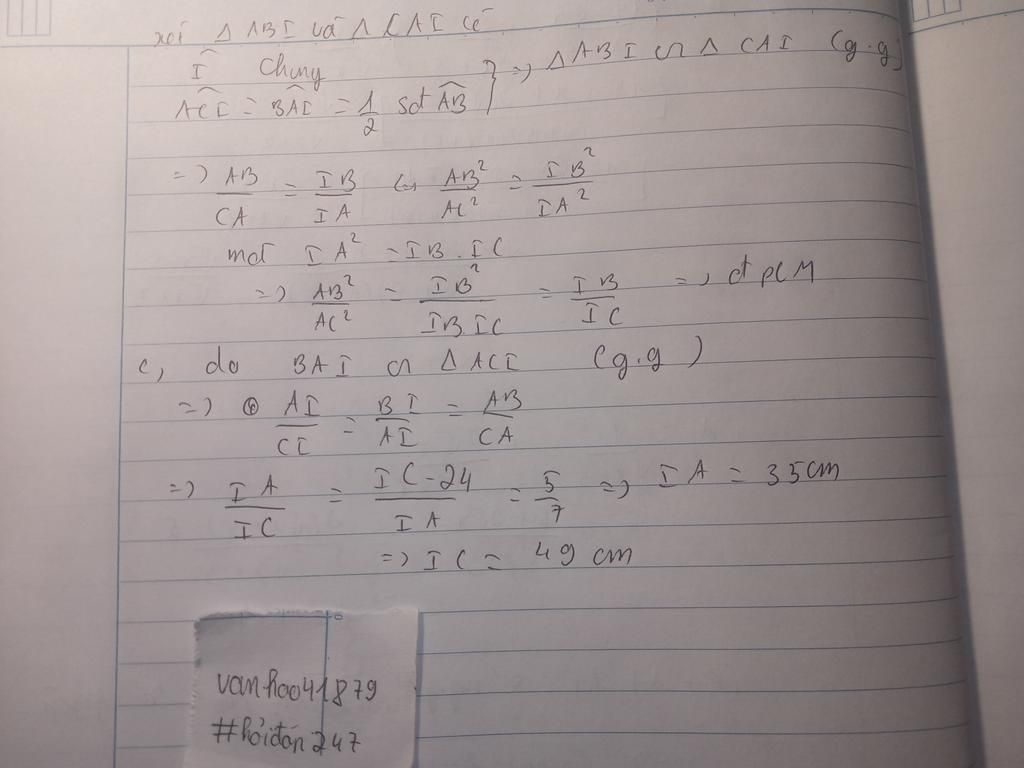 xét Δ ABI và Δ CAI có
Î Chung
ACI = BAI = 1/2 sđ AB } => Δ ABI ∽ Δ CAI (g.g)
=> AB/CA = IB/IA <=> AB²/AC² = IB²/IA²
mà IA² = IB . IC
=> AB²/AC² = IB²/IB IC = IB/IC => đpcM
c, do BAI ∽ Δ ACI (g.g)
=> AI/CI = BI/AI = AB/CA
=> IA/IC = IC-24/IA = 5/7 => IA = 35cm
=> IC = 49 cm
vanhao41879
#hỏiđáp247